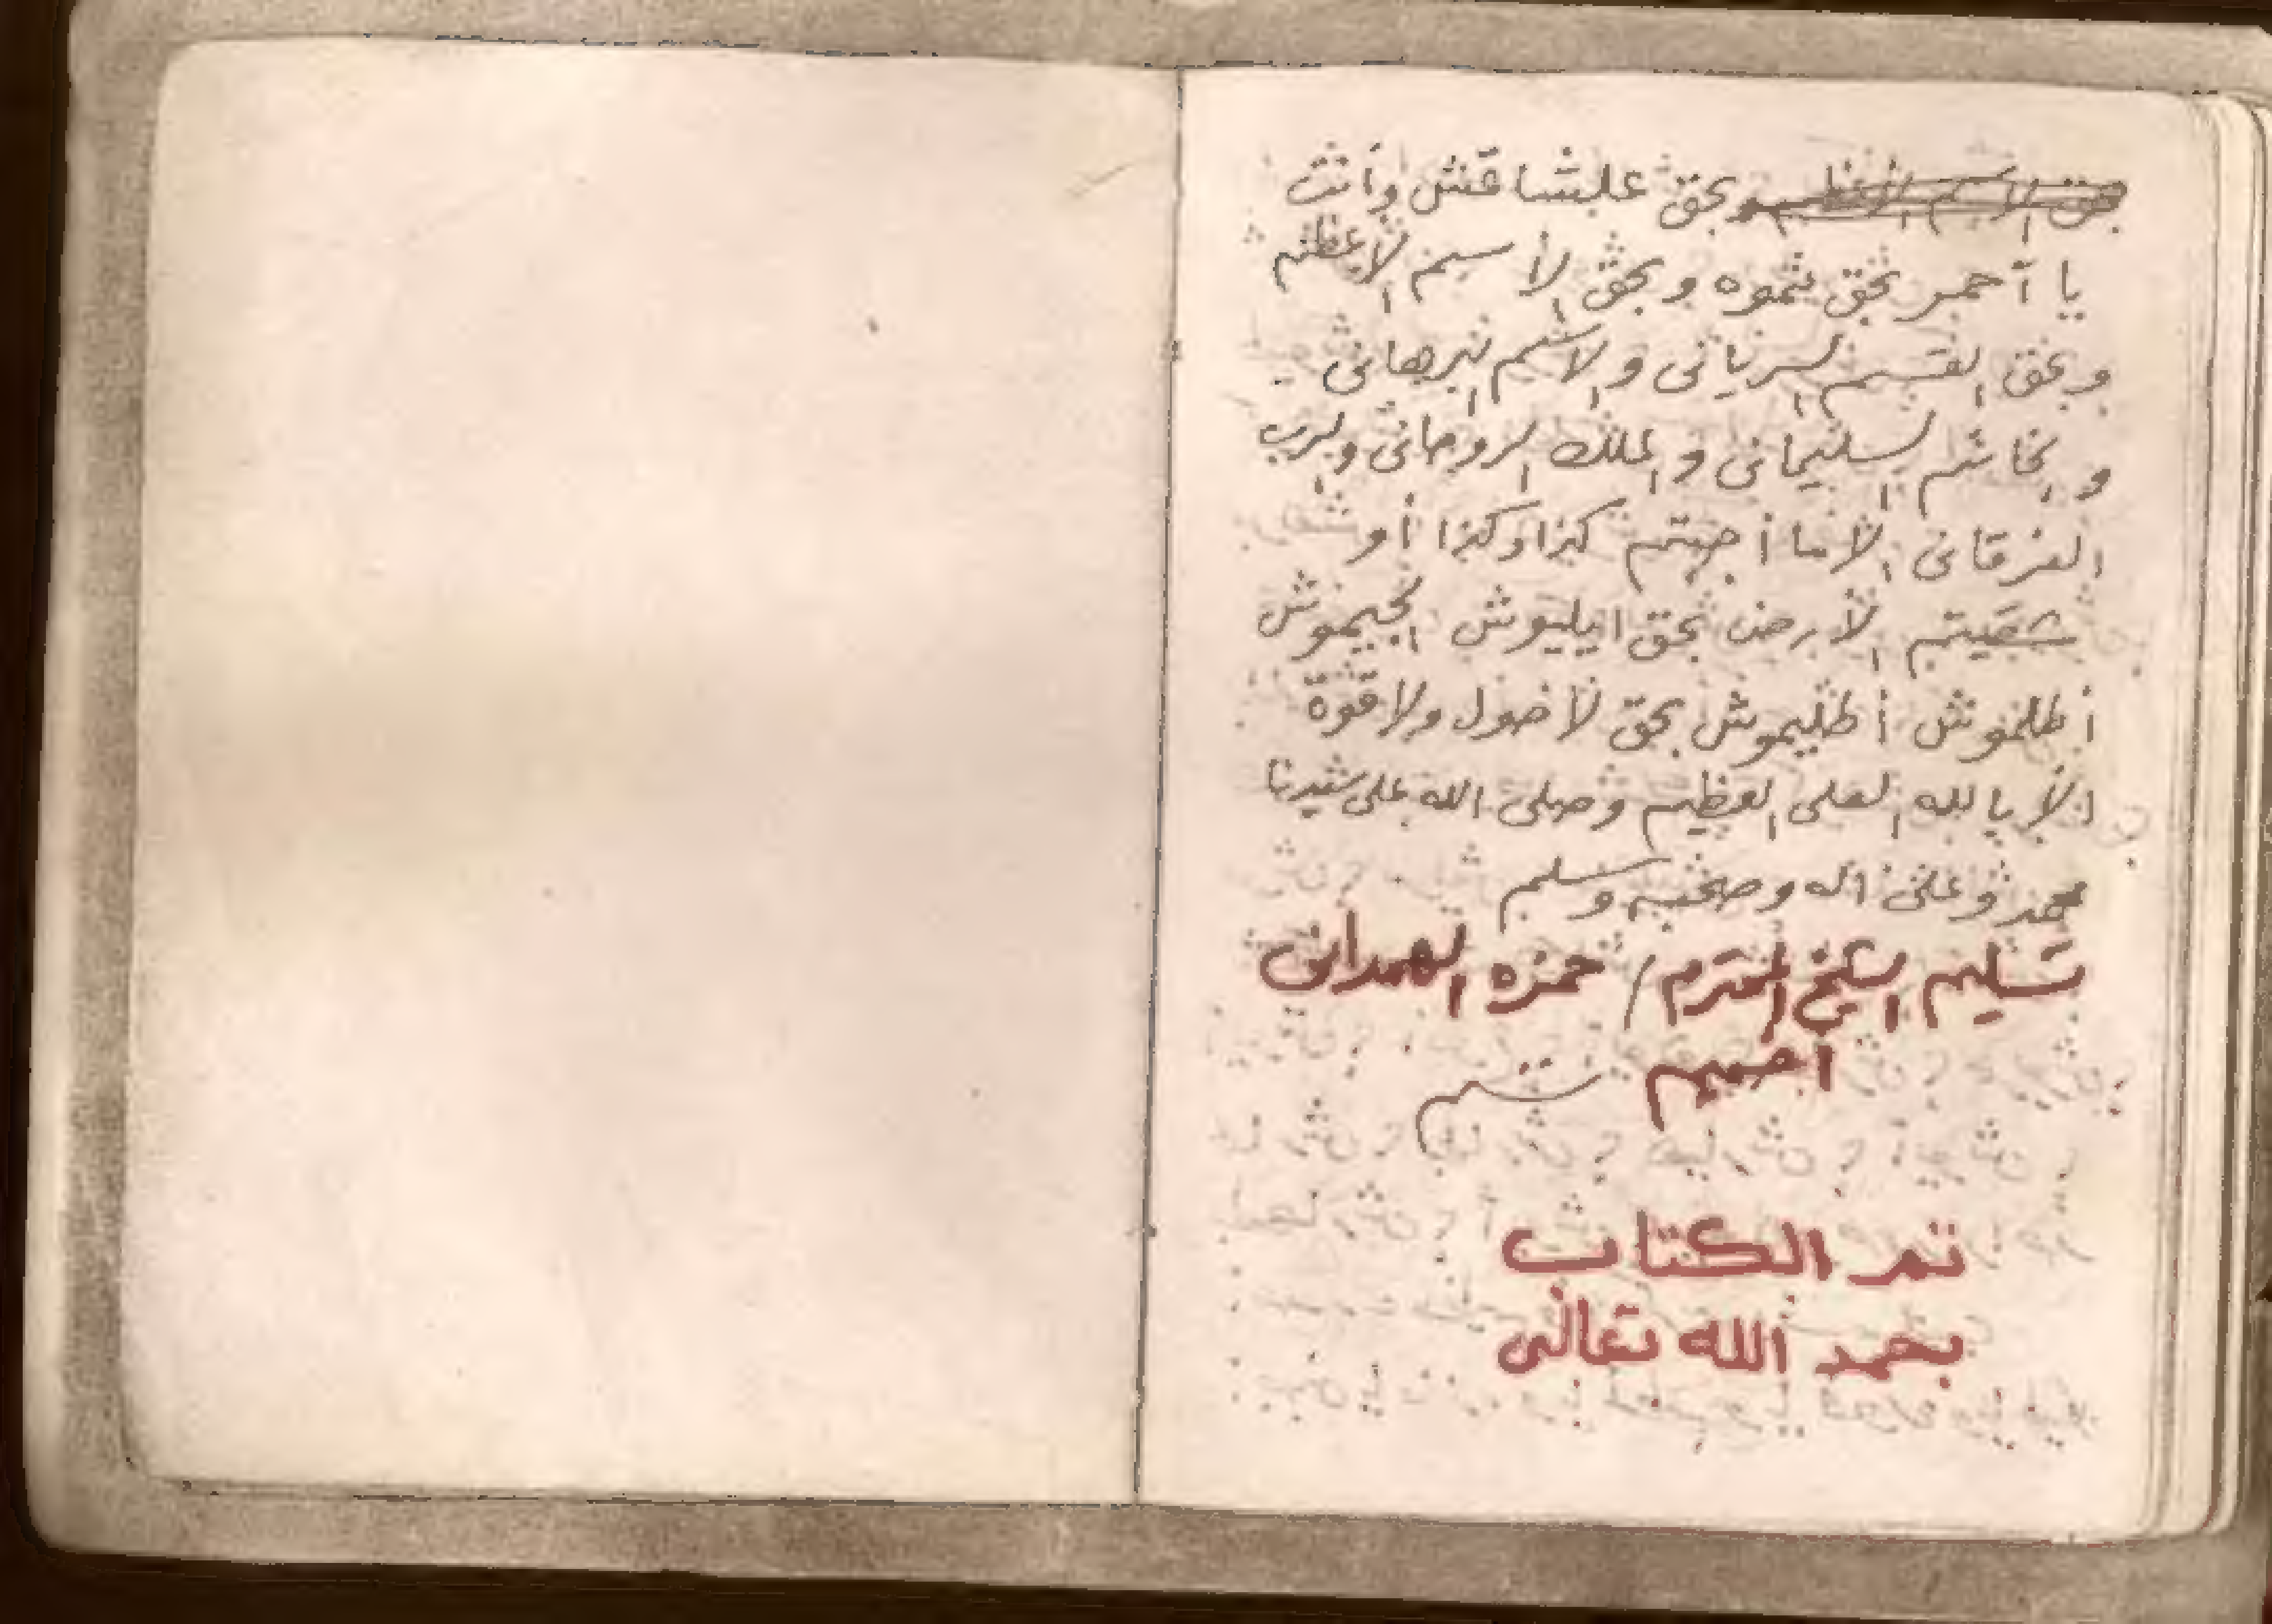 بحق الاسم الأعظم وبحق علشاقش وأنت
يا أحمر بحق وبحق الأسم الأعظم
وبحق القسم السرياني والاسم البرهاني
والخاتم السليماني والملك الروحاني والرب
الفرقاني الا ما أجبتم كذا وكذا أو
شقيتم الأرض بحق
بحق لا حول ولا قوة
الا بالله العلي العظيم وصلى الله على سيدنا
محمد وعلى اله وصحبه وسلم
تسليم الشيخ المحترم / حمزه الهمداني
تم الكتاب
بحمد الله تعالى